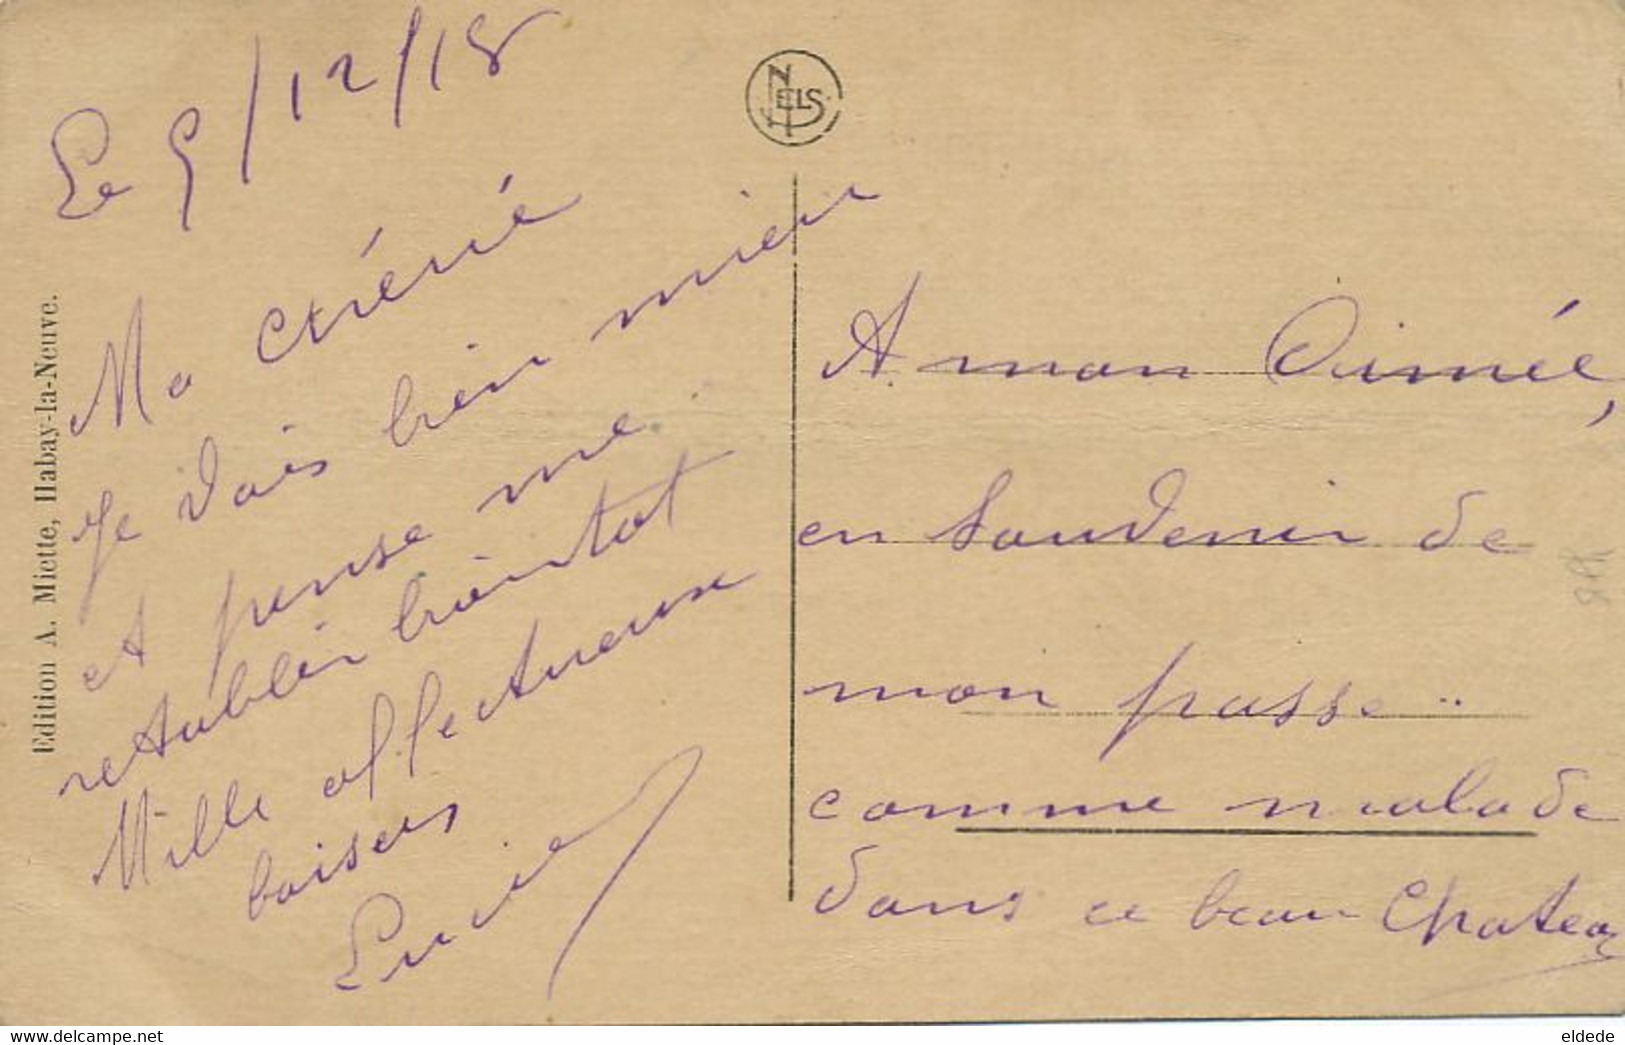 Le 5/12/18
Ma chérie
Je vais bien mieu
et pense me
retablir bientot
Mille affectueux
baisers
Lucien
NELS
Edition A. Miette, Habay-la-Neuve.
A mon Aimée,
en souvenir de
mon passe..
comme malade
dans ce beau Chateau
eldede